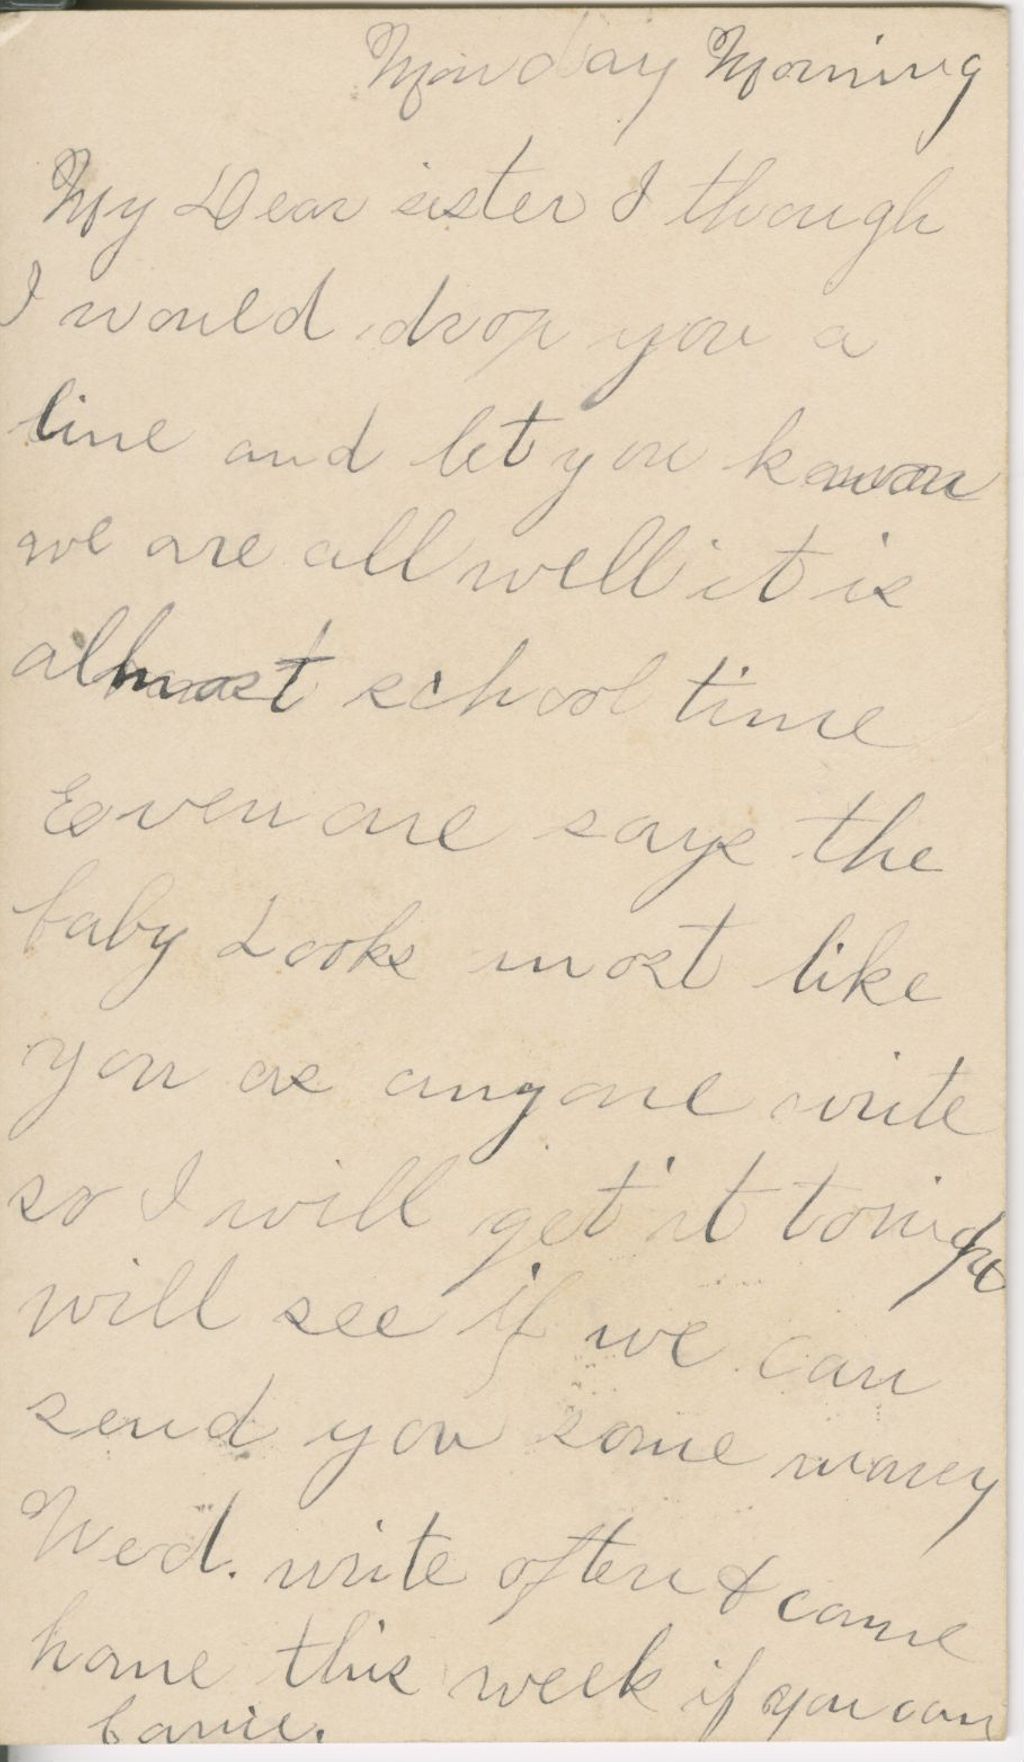 Monday Morning
My Dear sister I though
I would drop you a
line and let you know
we are all well it is
almost school time
Everone says the
baby Looks most like
you as anyone write
so I will get it tonight
will see if we can
send you some money
Wed. write often & come
home this week if you can